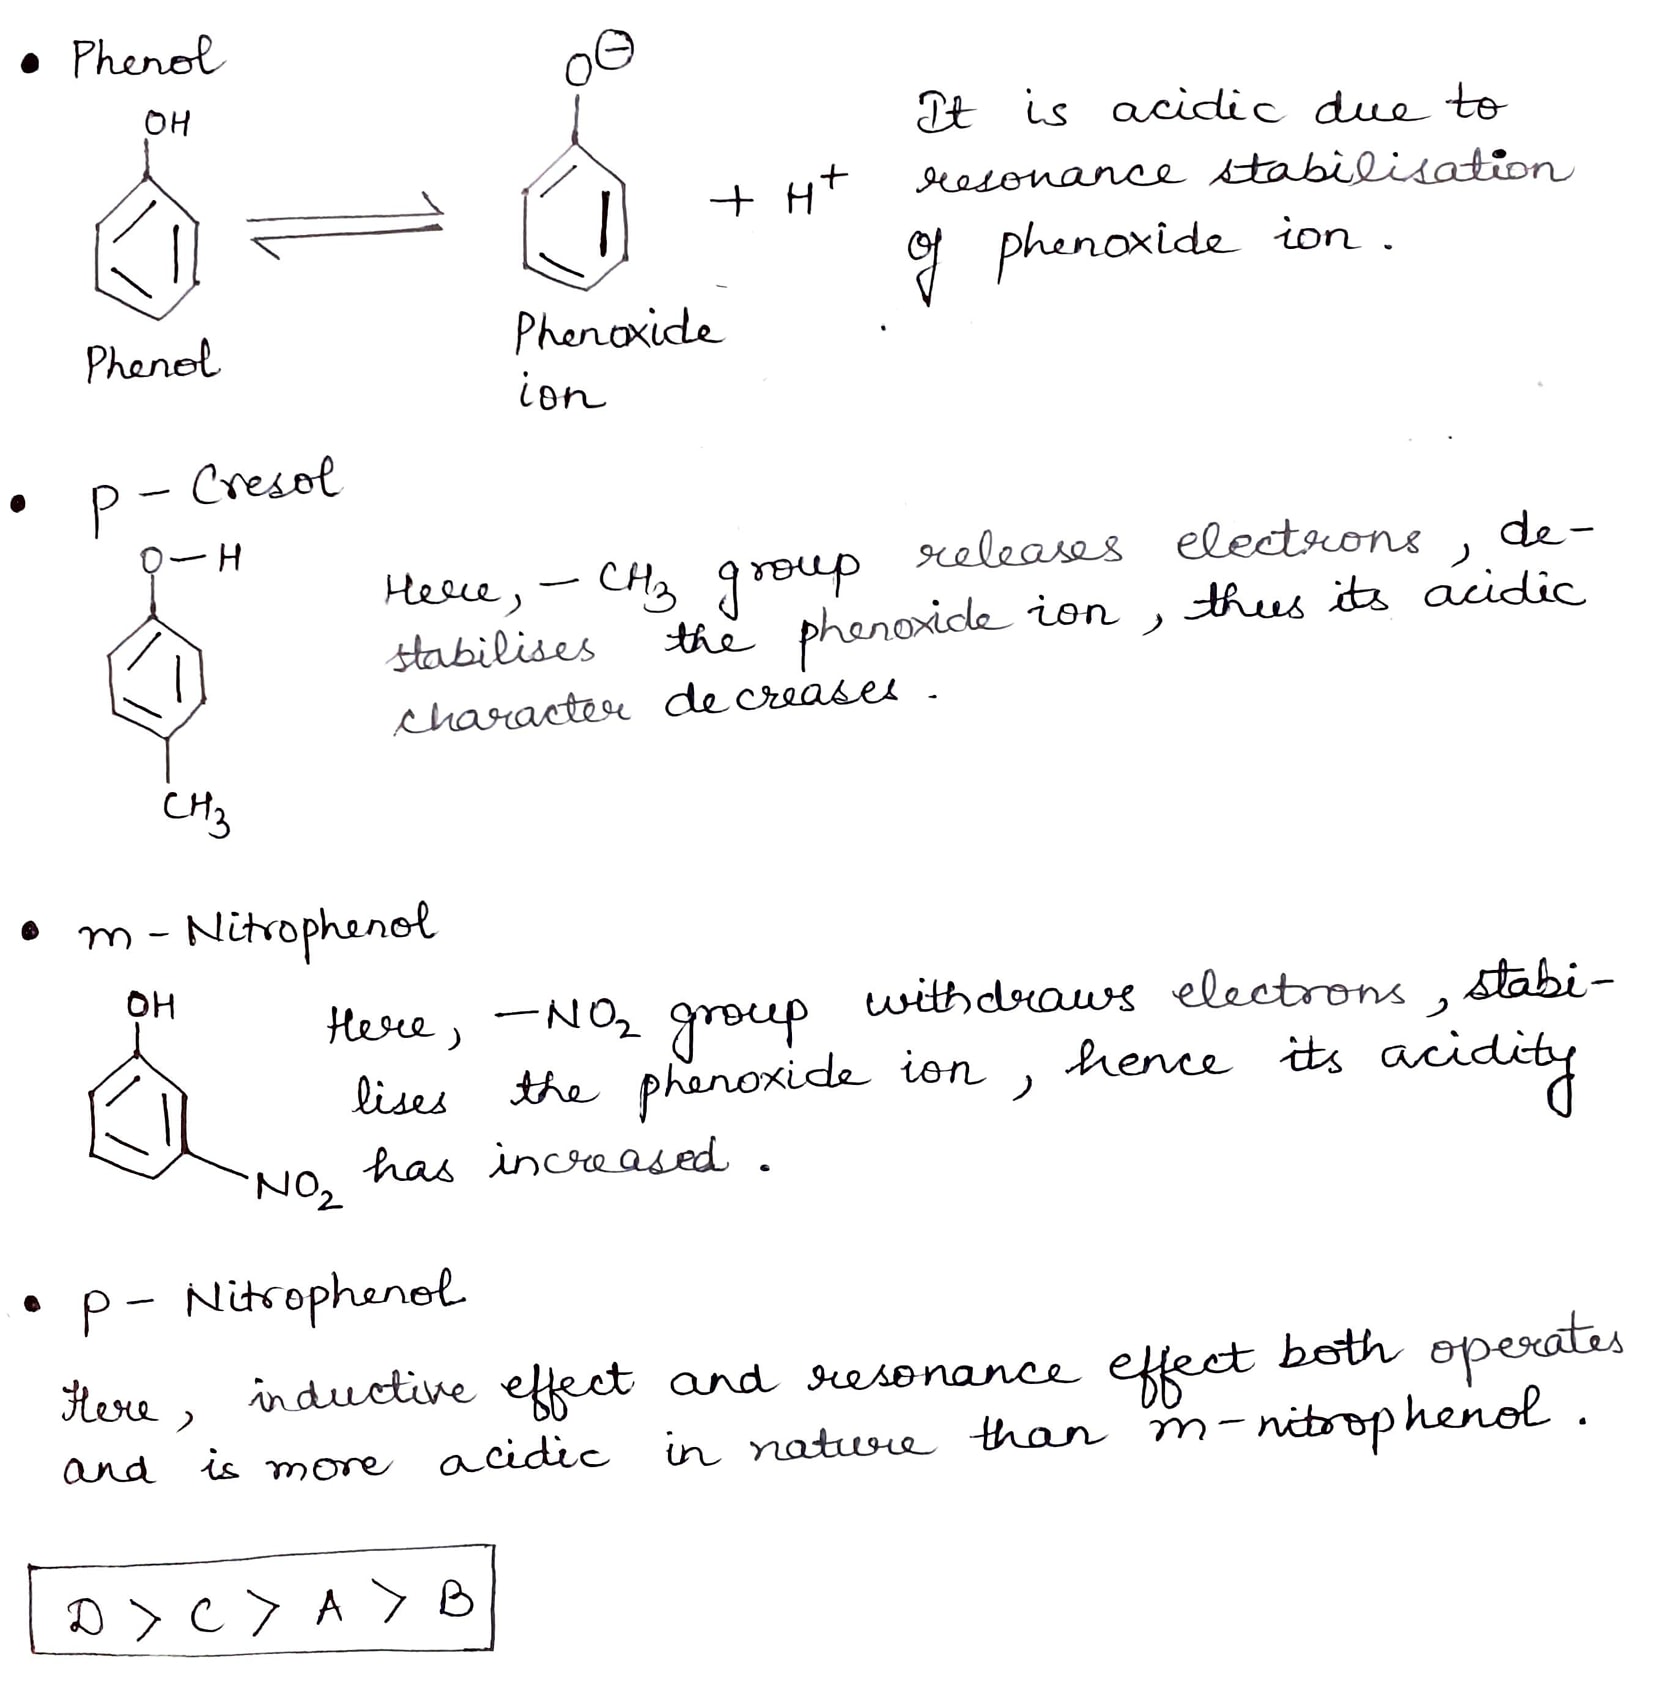 • Phenol
OH
O⊖
+ H⁺
Phenol
Phenoxide
ion
It is acidic due to
resonance stabilisation
of phenoxide ion.
• p - Cresol
O-H
CH₃
Here, - CH₃ group releases electrons, de-
stabilises the phenoxide ion, thus its acidic
character decreases.
• m - Nitrophenol
OH
NO₂
Here, -NO₂ group withdraws electrons, stabi-
lises the phenoxide ion, hence its acidity
has increased.
• p - Nitrophenol
Here, inductive effect and resonance effect both operates
and is more acidic in nature than m-nitrophenol.
D > C > A > B